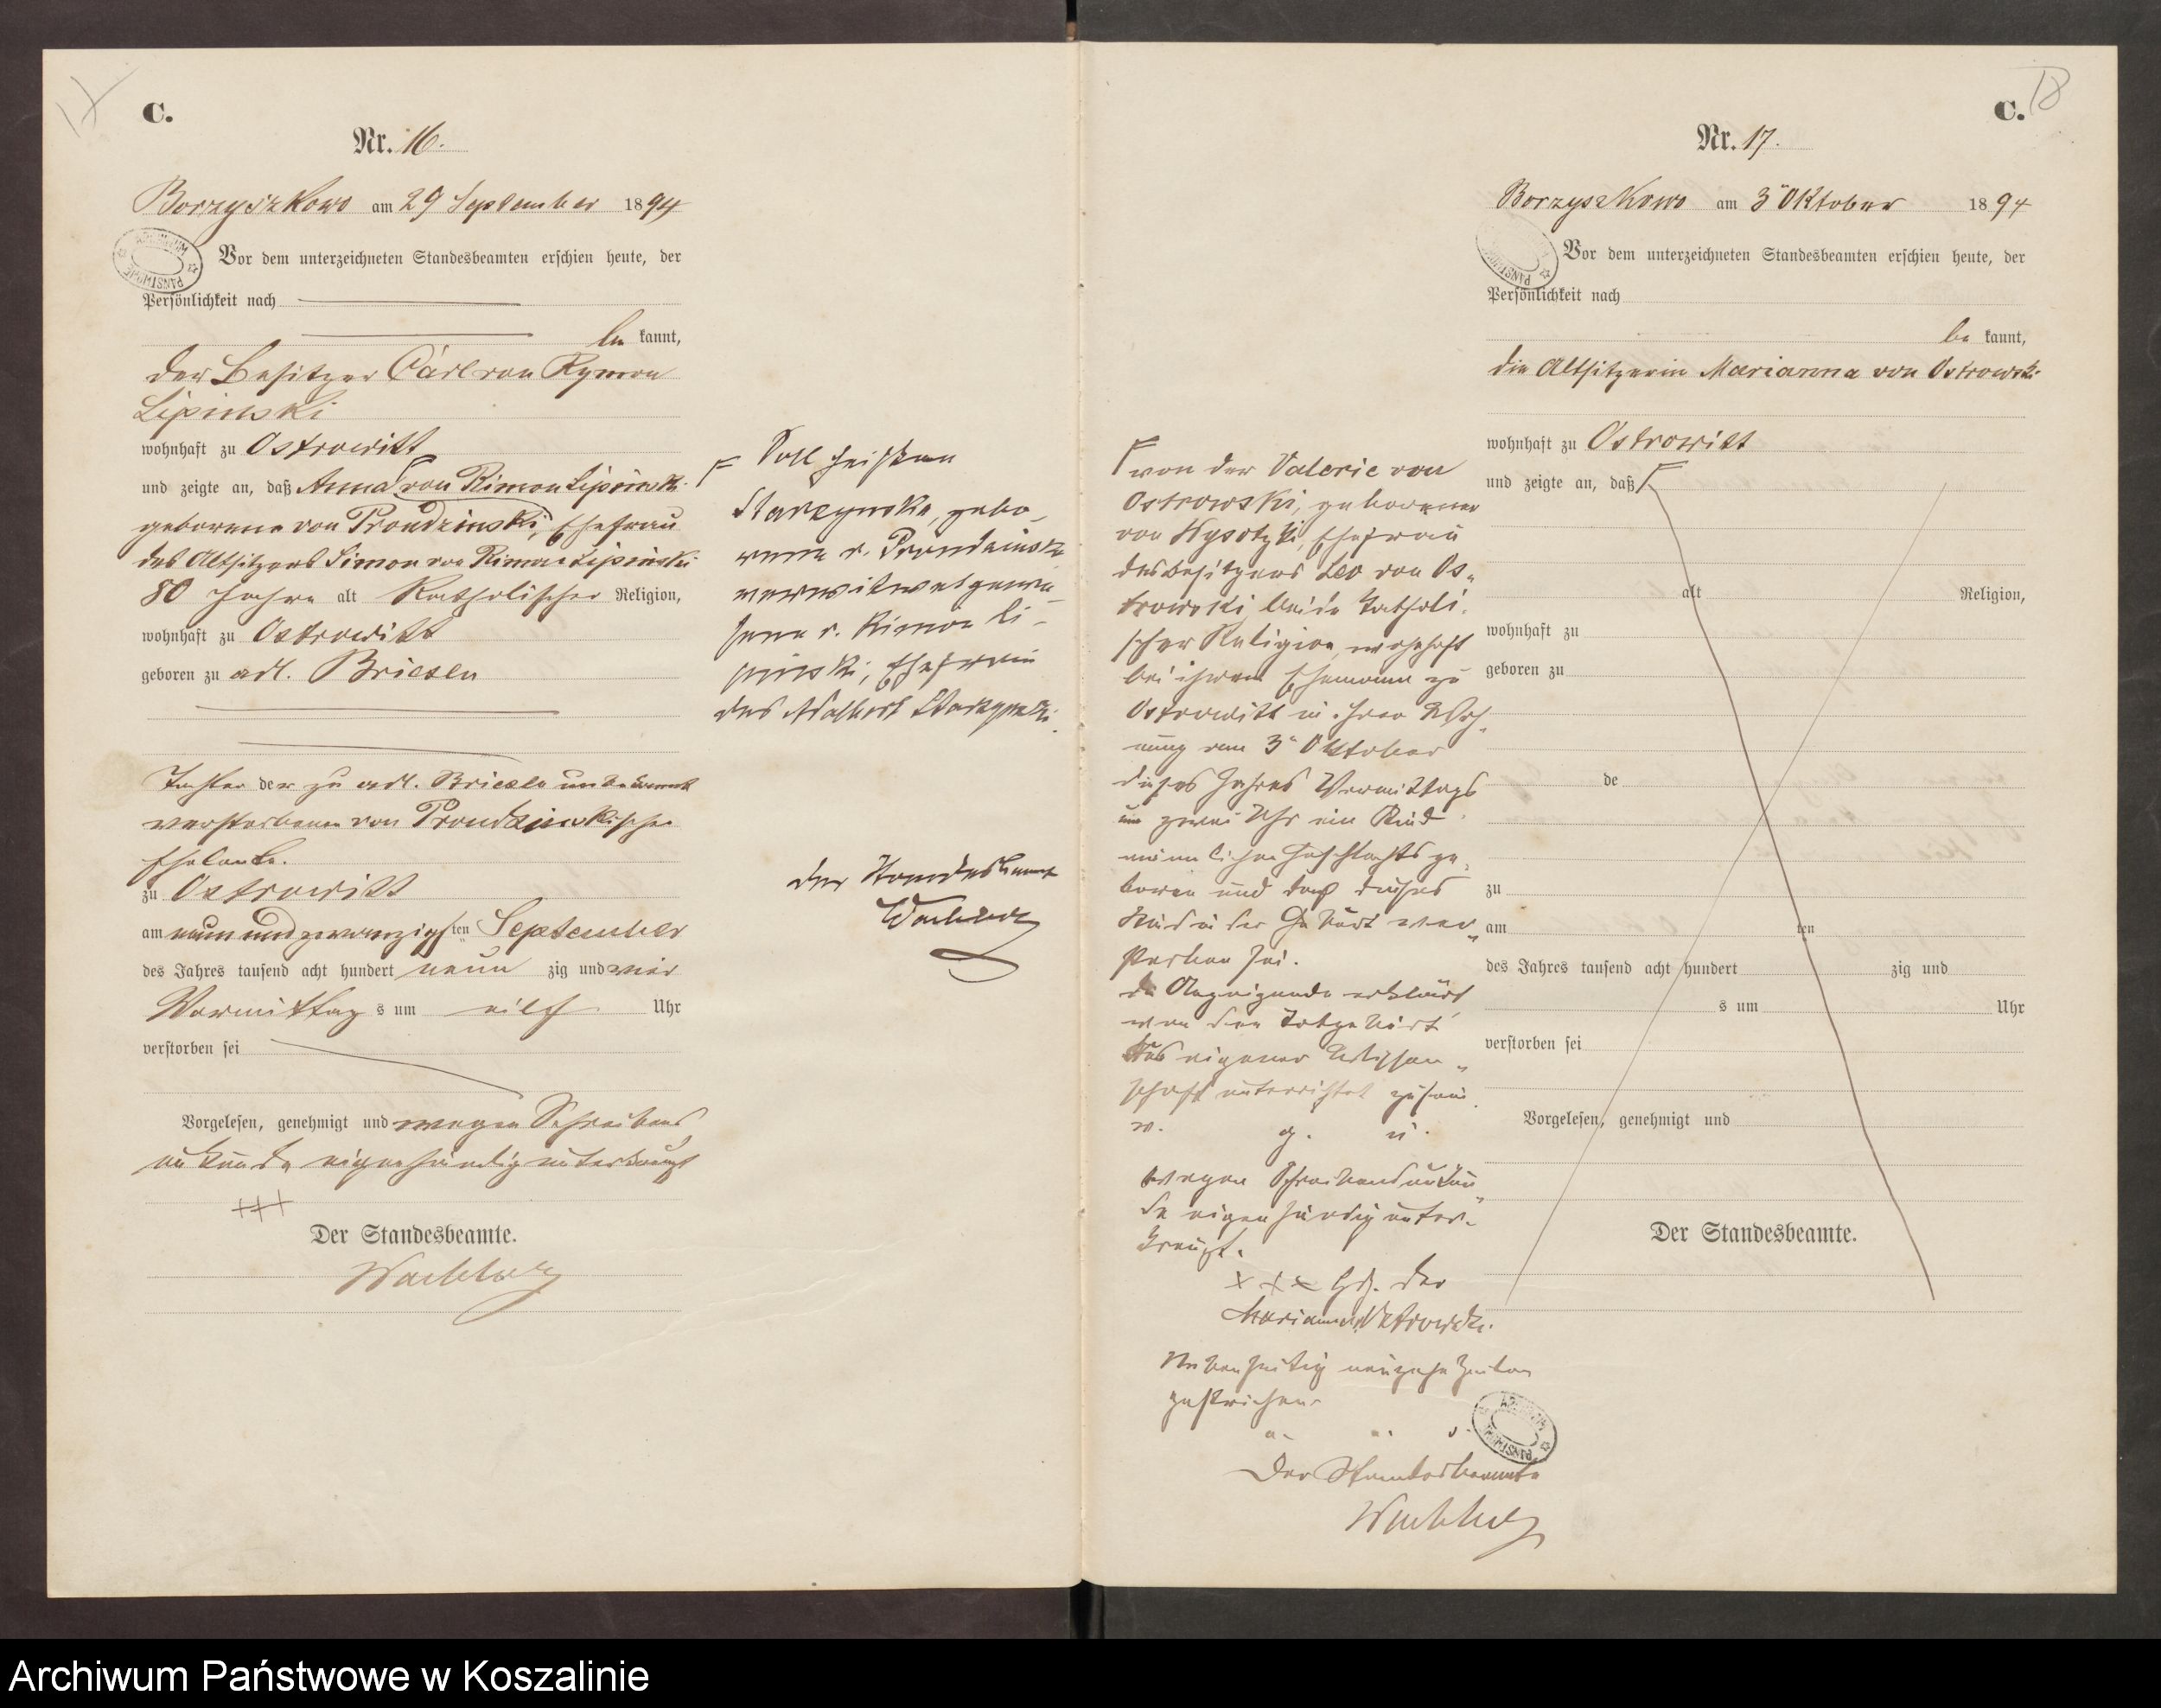 C.
Nr. 16.
Borzyszkowo am 29 September 1894
Vor dem unterzeichneten Standesbeamten erschien heute, der
Persönlichkeit nach
be kannt,
der Besitzer Carl von Rymon
Lipinski
wohnhaft zu Ostrowitt
und zeigte an, daß Anna von Rimon Lipinski
geborene von Prondzinski, Ehefrau
des Altsitzers Simon von Rimon Lipinski
80 Jahre alt Katholischer Religion,
wohnhaft zu Ostrowitt
geboren zu adl. Briesen
Tochter der zu adl. Briesen
verstorbenen von Prondzinskischen
Eheleute.
zu Ostrowitt
am neun und zwanzigsten September
des Jahres tausend acht hundert neun zig und vier
Vormittag s um eilf Uhr
verstorben sei
Vorgelesen, genehmigt und wegen Schreibens
unkunde eigenhändig unterkreuzt
+++
Der Standesbeamte.
Wachholz
Soll heißen
Starzynska, gebo-
rene v. Prondzinska
verwitwet gewe-
sene v. Rimon Li-
pinski, Ehefrau
des Adalbert Starzynski.
Der Standesbeamte
Wachholz
C.
18
Nr. 17.
Borzyszkowo am 3" Oktober 1894
Vor dem unterzeichneten Standesbeamten erschien heute, der
Persönlichkeit nach
be kannt,
die Altsitzerin Marianna von Ostrowski
wohnhaft zu Ostrowitt
und zeigte an, daß
alt Religion,
wohnhaft zu
geboren zu
de
zu
am ten
des Jahres tausend acht hundert zig und
s um Uhr
verstorben sei
Vorgelesen, genehmigt und
Der Standesbeamte.
von der Valerie von
Ostrowski, geborenen
von Wysotzki, Ehefrau
des Besitzers Leo von Os-
trowski beide katholi-
scher Religion, wohnhaft
bei ihrem Ehemann zu
Ostrowitt in ihrer Woh-
nung am 3" Oktober
dieses Jahres Vormittags
um zwei Uhr ein Kind
männlichen Geschlechts ge-
boren und daß dieses
Kind in der Geburt ver-
storben sei.
die Anzeigende erklärt,
von der Todgeburt
aus eigener Wissen-
schaft unterrichtet zu sein.
v. g. u.
wegen Schreibensunkun-
de eigenhändig unter-
kreuzt.
+ + + Hdz. der
Marianna Ostrowski.
Nebenseitig neunzehn Zeilen
gestrichen.
Der Standesbeamte
Wachholz
Archiwum Państwowe w Koszalinie